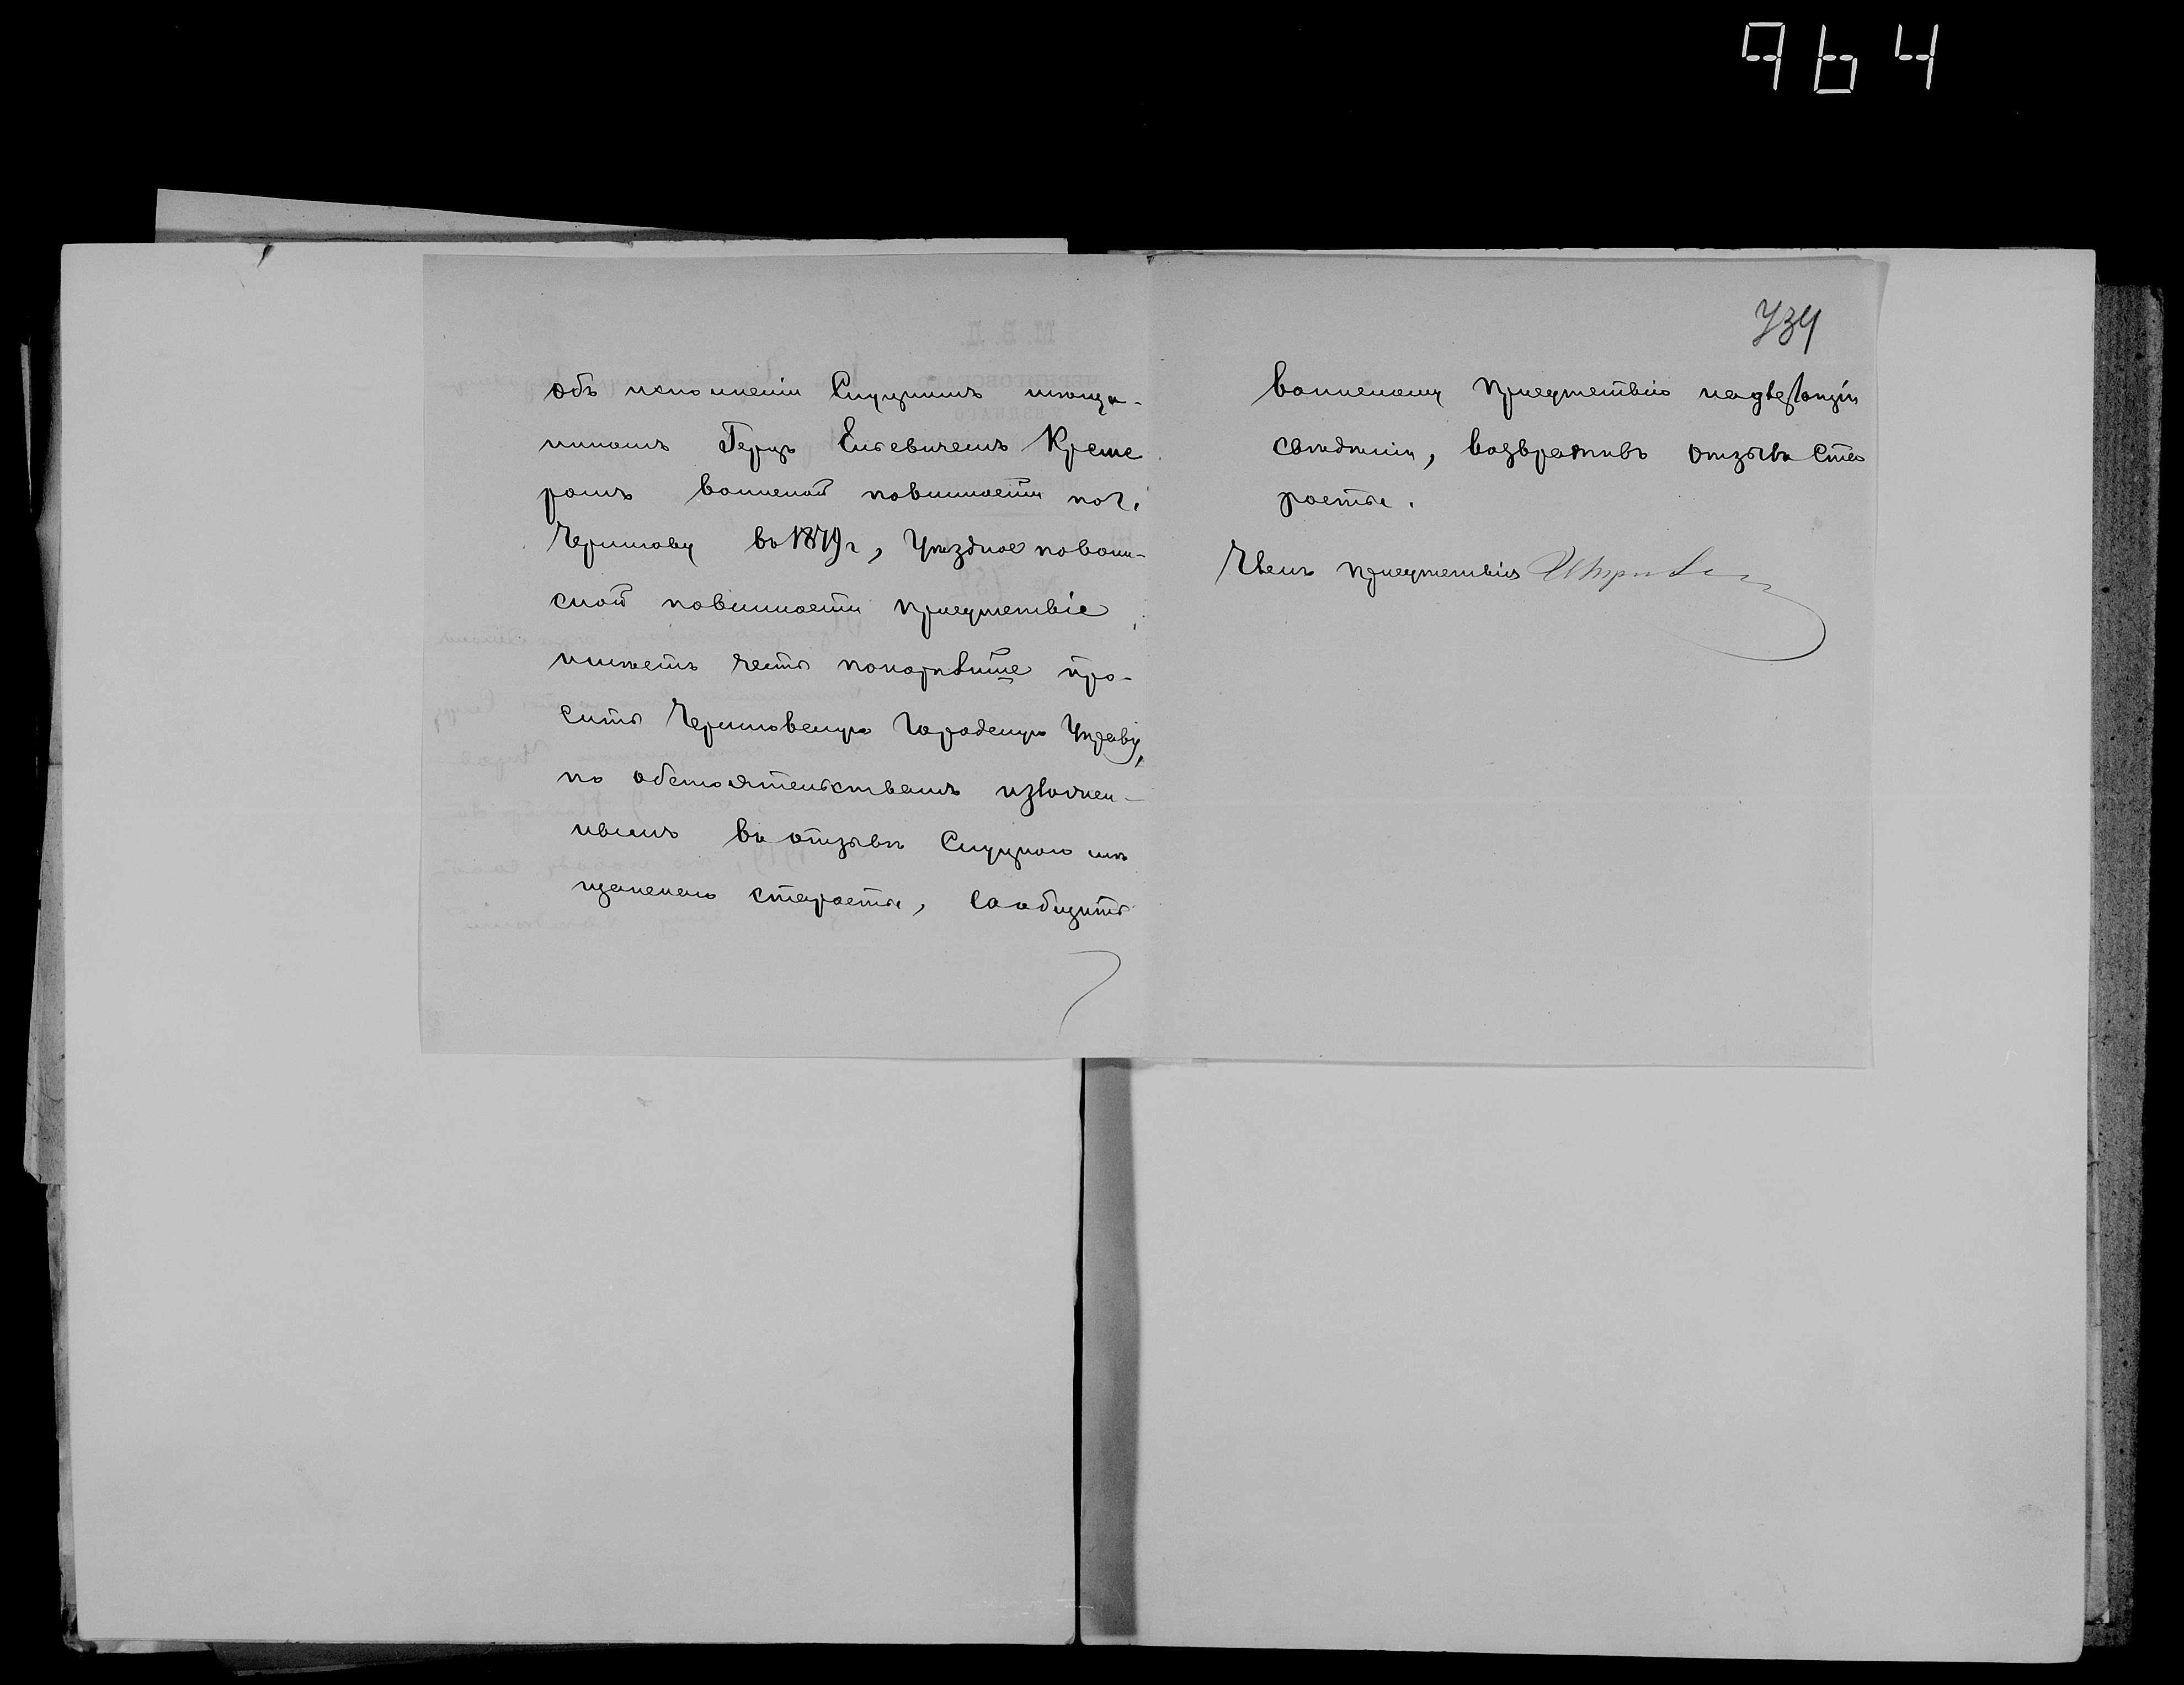 964
734
объ исполненіи Слуцкимъ мѣща-
ниномъ Герцъ Евсевичемъ Креме
ромъ воинской повинности по г.
Чернигову въ 1879 г, Уѣздное по воин-
ской повинности присутствіе,
имѣетъ честь покорнѣйше про-
сить Черниговскую Городскую Управу,
по обстоятельствамъ изложен-
нымъ въ отзывѣ Слуцкаго мѣ
щанскаго старосты, сообщить
воинскому присутствію надлежащія
свѣдѣнія, возвративъ отзывъ ста
росты.
Членъ присутствія